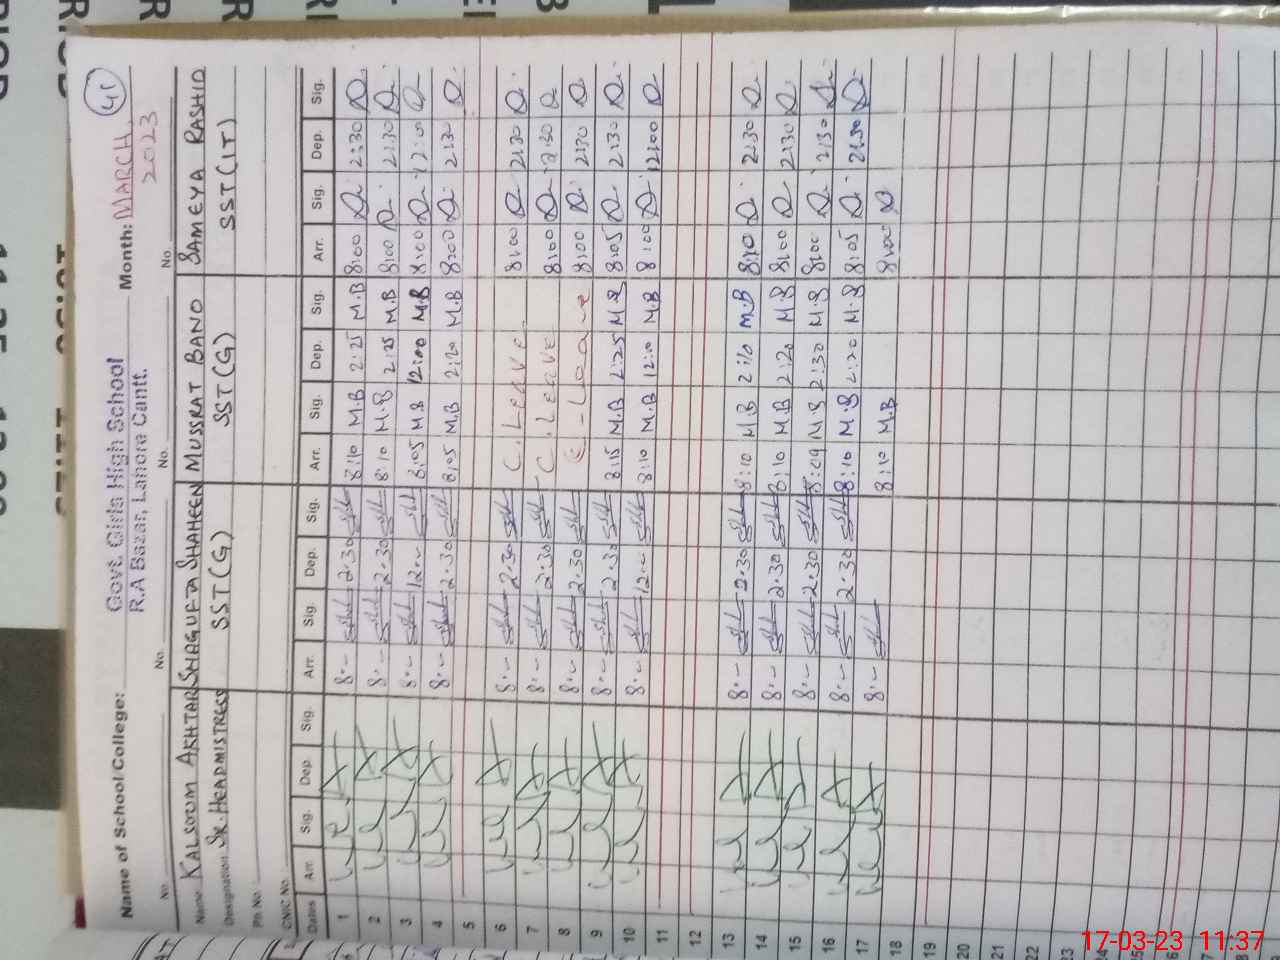 41
Name of School College: Govt. Girls High School Month: MARCH,
R.A Bazar, Lahore Cantt. 2023
No. No. No. No.
Name KALSOOM AKHTAR SHAGUFTA SHAHEEN MUSSRAT BANO SAMEYA RASHID
Designation Sr. HEADMISTRESS SST(G) SST(G) SST(IT)
Ph No.
CNIC No.
Dates Arr. Sig. Dep Sig. Arr. Sig. Dep. Sig. Arr. Sig. Dep. Sig. Arr. Sig. Dep. Sig.
1 8.— 2.30 8:10 M.B 2:25 M.B 8:00 2:30
2 8.— 2.30 8:10 M.B 2:25 M.B 8:00 2:30
3 8.— 12.— 8:05 M.B 12:00 M.B 8:00 12:00
4 8.— 2.30 8:05 M.B 2:20 M.B 8:00 2:30
5
6 8.— 2.30 C. LEAVE 8:00 2:30
7 8.— 2.30 C. LEAVE 8:00 2:30
8 8.— 2.30 C - Leave 8:00 2:30
9 8.— 2.30 8:15 M.B 2:25 M.B 8:05 2:30
10 8.— 12.— 8:10 M.B 12:00 M.B 8:00 12:00
11
12
13 8.— 2.30 8:10 M.B 2:10 M.B 8:00 2:30
14 8.— 2.30 8:10 M.B 2:20 M.B 8:00 2:30
15 8.— 2.30 8:09 M.B 2:30 M.B 8:00 2:30
16 8.— 2.30 8:10 M.B 2:20 M.B 8:05 2:30
17 8.— 8:10 M.B 8:00
18
19
20
21
22
23
24
25
26
27
17-03-23 11:37